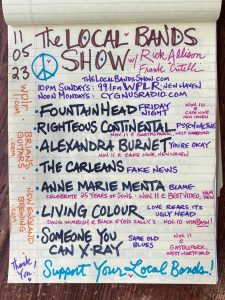 11
05
23
The LOCAL BANDS
SHOW w/ Rick Allison
Frank Critelli
THELOCALBANDSSHOW.COM
10PM SUNDAYS: 99.1FM WPLR NEW HAVEN
NOON MONDAYS: CYGNUSRADIO.COM
FOUNTAINHEAD FRIDAY NIGHT
NOV. 10 @ CAFE NINE NEW HAVEN
RIGHTEOUS CONTINENTAL
NOV. 11 @ GASTROPARK, WEST HARTFORD
ALEXANDRA BURNET YOU'RE OKAY
NOV. 11 @ CAFE NINE, NEW HAVEN
THE CARLEANS FAKE NEWS
ANNE MARIE MENTA BLAME
CELEBRATE 25 YEARS OF SONG NOV. 11 @ BEST VIDEO, HAMDEN
LIVING COLOUR LOVE REARS ITS UGLY HEAD
NOV. 10
SOMEONE YOU CAN X-RAY SAME OLD BLUES
NOV 11 @ GASTROPARK, WEST HARTFORD
Thank You
Support Your Local Bands!
BRIANS GUITARS .COM
NEW ENGLAND